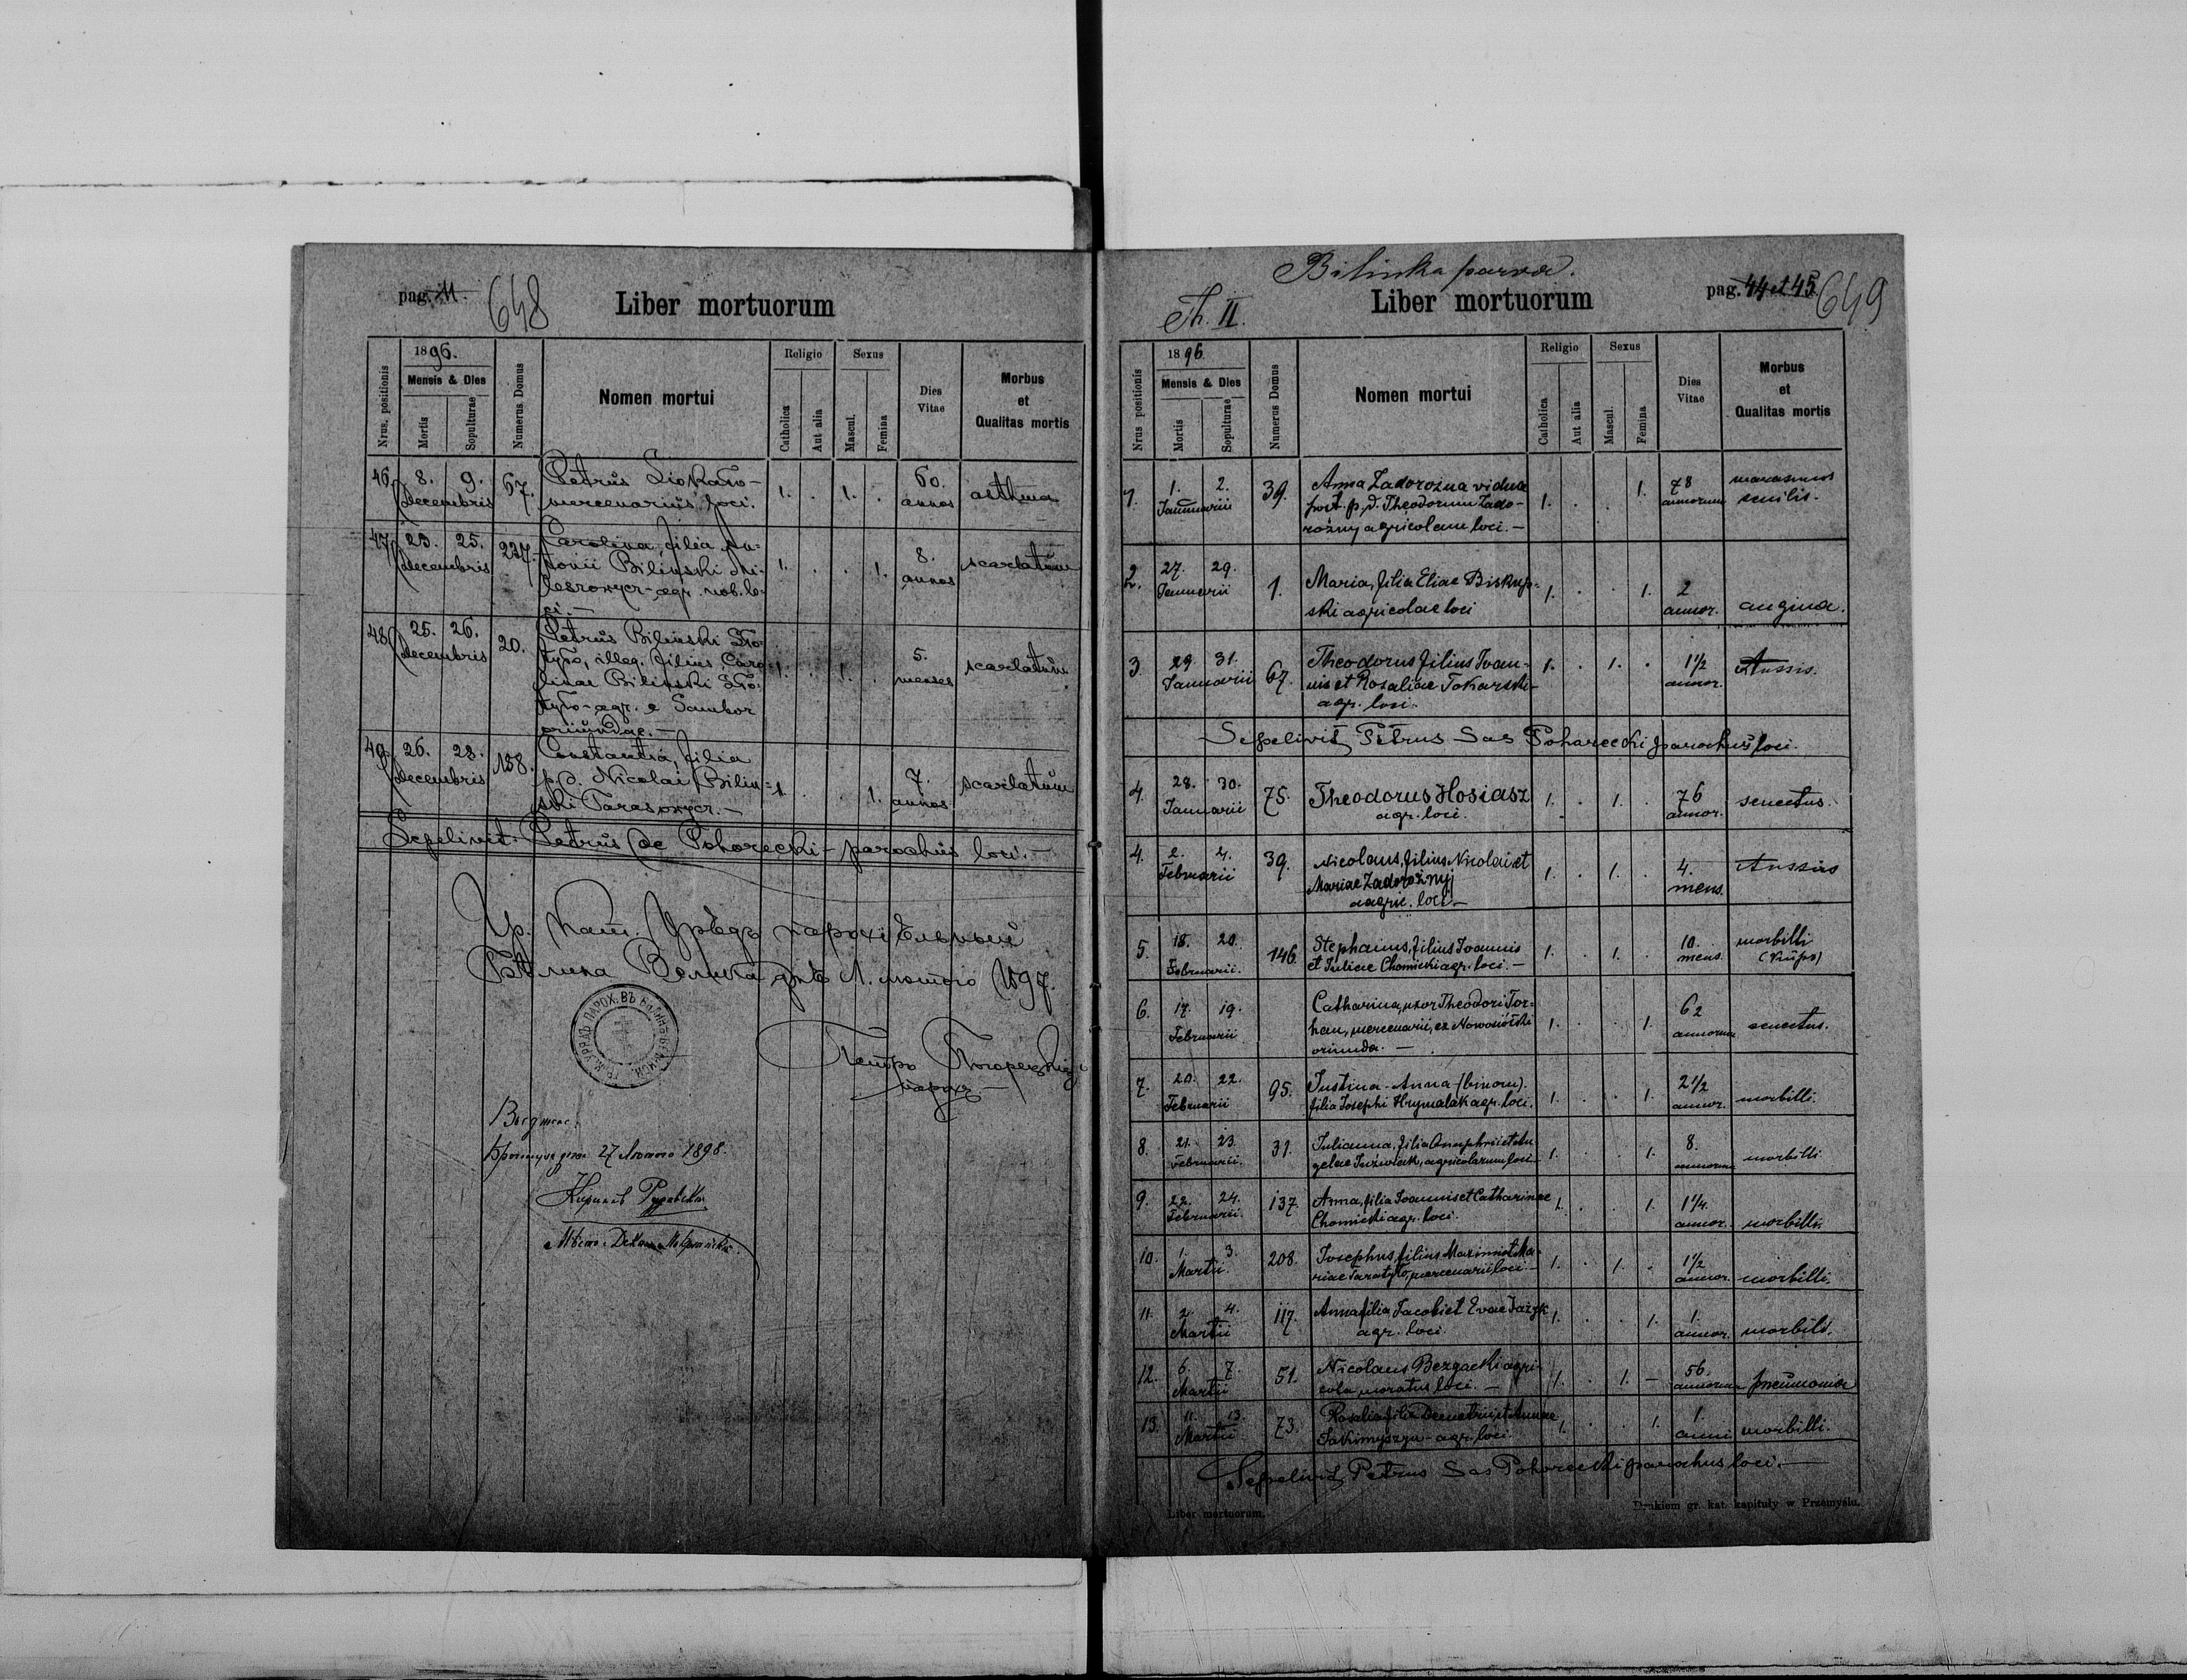 pag. 11.
648
Liber mortuorum
Nrus. positionis
1896.
Mensis & Dies
Mortis
Sopulturae
Numerus Domus
Nomen mortui
Religio
Catholica
Aut alia
Sexus
Mascul.
Femina
Dies Vitae
Morbus
et
Qualitas mortis
46. 8. 9. 67. Petrus
Decembris mercenarius loci. 1. . 1. . 60. annos asthma
47. 23. 25. 227. Carolina, filia An-
Decembris tonii Bilinski
agr. nob. lo-
ci.— 1. . . 1. 8. annos scarlatum
48. 25. 26. 20. Petrus Bilinski
Decembris illeg. filius Caro-
linae Bilinski
agr. e Sambor
oriundae.— 1. . 1. . 5. menses scarlatum
49. 26. 28. 158. Constantia, filia
Decembris p.d. Nicolai Bilin-
ski Tarasowycz.— 1. . . 1. 7. annos scarlatum
Sepelivit: Petrus de Pohorecki – parochus loci.—
Гр. Кат. Урядъ парохіяльный
Велика дня 1. лютого 1897.
Петро Погорецкій
парохъ
27 Лютого 1898.
Bilinka parva.
Th. II.
Liber mortuorum
pag. 44 et 45
649
Nrus positionis
1896.
Mensis & Dies
Mortis
Sopulturae
Numerus Domus
Nomen mortui
Religio
Catholica
Aut alia
Sexus
Mascul.
Femina
Dies Vitae
Morbus
et
Qualitas mortis
1. 1. 2. 39. Anna Zadorożna vidua
Januarii post p.d. Theodorum Zado-
rożny agricolam loci.— 1. . . 1. 78 annorum marasmus senilis.
2. 27. 29. 1. Maria, filia Eliae Biskup-
Januarii ski agricolae loci 1. . . 1. 2 annor. angina.
3 29. 31. 67. Theodorus filius Ioan-
Januarii nis et Rosaliae Tokarski-
agr. loci. 1. . 1. . 1½ annor. tussis.
Sepelivit Petrus Sas Pohorecki parochus loci.
4. 28. 30. 75. Theodorus Hosiasz
Januarii agr. loci. 1. . 1. . 76 annor. senectus.
4. 2. 4. 39. Nicolaus, filius Nicolai et
Februarii Mariae Zadorożnyj
agr. loci.— 1. . 1. . 4. mens. tussis
5. 18. 20. 146. Stephanus, filius Ioannis
Februarii. et Juliae Chomicki agr. loci.— 1. . 1. . 10. mens. morbilli
6. 17. 19. Catharina, uxor Theodori Tor-
Februarii han, mercenarii, ex Nowosiółki
oriunda.— 1. . . 1. 62 annorum senectus.
7. 20. 22. 95. Justina-Anna-(binom).
Februarii filia Josephi Hrymalak agr. loci. 1. . . 1. 2½ annor. morbilli.
8. 21. 23. 31. Julianna, filia Onuphrii et An-
Februarii. gelae agricolarum loci 1. . . 1. 8. annorum morbilli
9. 22. 24. 137. Anna, filia Ioannis et Catharinae
Februarii. Chomicki agr. loci. 1. . . 1. 1¼. annor. morbilli.
10. 1. 3. 208. Josephus, filius Maximi et Ma-
Martii. riae mercenarii loci.— 1. . 1. . 1½ annor. morbilli.
11. 2. 4. 117. Anna filia Jacobi et Evae
Martii agr. loci. 1. . . 1. 1. annor. morbili.
12. 6. 7. 51. Nicolaus Bezgacki agri-
Martii cola moratus loci.— 1. . 1. – 56. annorum pneumonia
13. 11. 13. 73. Rosalia filia Demetrii et Annae
Martii Jakimyszyn - agr. loci. 1. . . 1. 1. anni morbilli.
Sepelivit Petrus Sas Pohorecki parochus loci.—
Liber mortuorum.
Drukiem gr. kat. kapituły w Przemyślu.